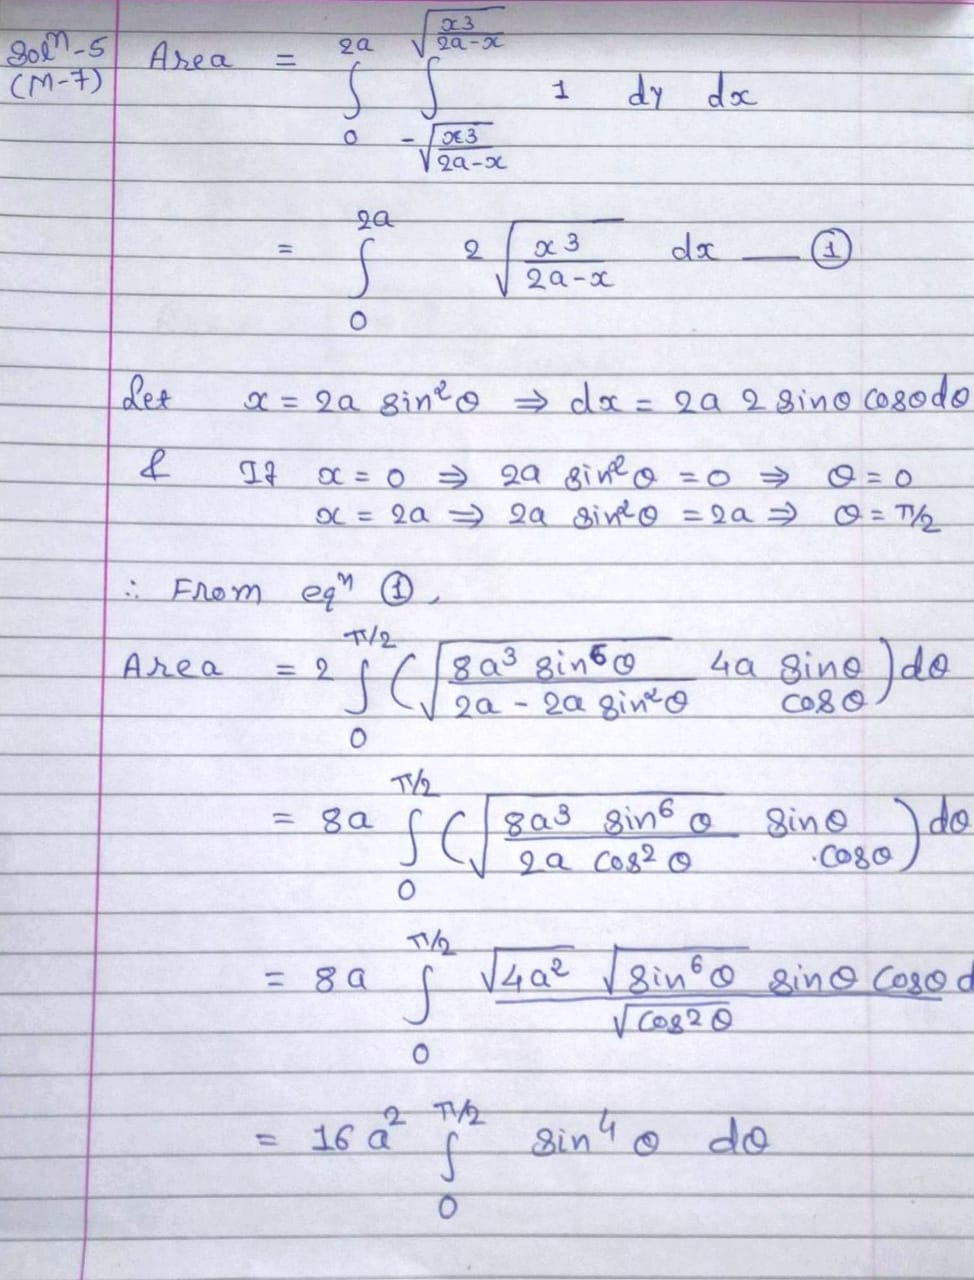 Solⁿ-5
(M-7)
Area = ∫₀^{2a} ∫_{-√(x3/(2a-x))}^{√(x3/(2a-x))} 1 dy dx
= ∫₀^{2a} 2 √(x3/(2a-x)) dx — ①
Let x = 2a sin²θ ⇒ dx = 2a 2 sinθ cosθdθ
& If x = 0 ⇒ 2a sin²θ = 0 ⇒ θ = 0
x = 2a ⇒ 2a sin²θ = 2a ⇒ θ = π/2
∴ From eqⁿ ①,
Area = 2 ∫₀^{π/2} (√(8a³ sin⁶θ/(2a - 2a sin²θ)) 4a sinθ cosθ) dθ
= 8a ∫₀^{π/2} (√(8a³ sin⁶θ/(2a cos²θ)) sinθ .cosθ) dθ
= 8a ∫₀^{π/2} √4a² √sin⁶θ sinθ cosθ d / √cos2θ
= 16a² ∫₀^{π/2} sin⁴θ dθ